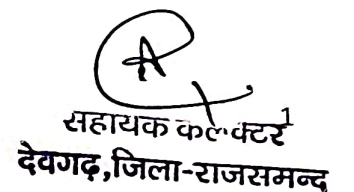 सहायक कलेक्टर
देवगढ़,जिला-राजसमन्द